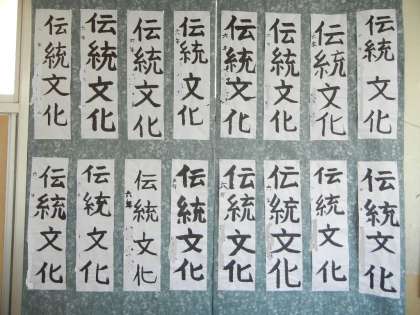 伝統文化
伝統文化
伝統文化
伝統文化
伝統文化
伝統文化
伝統文化
伝統文化
伝統文化
伝統文化
伝統文化
伝統文化
伝統文化
伝統文化
六年
伝統文化
伝統文化